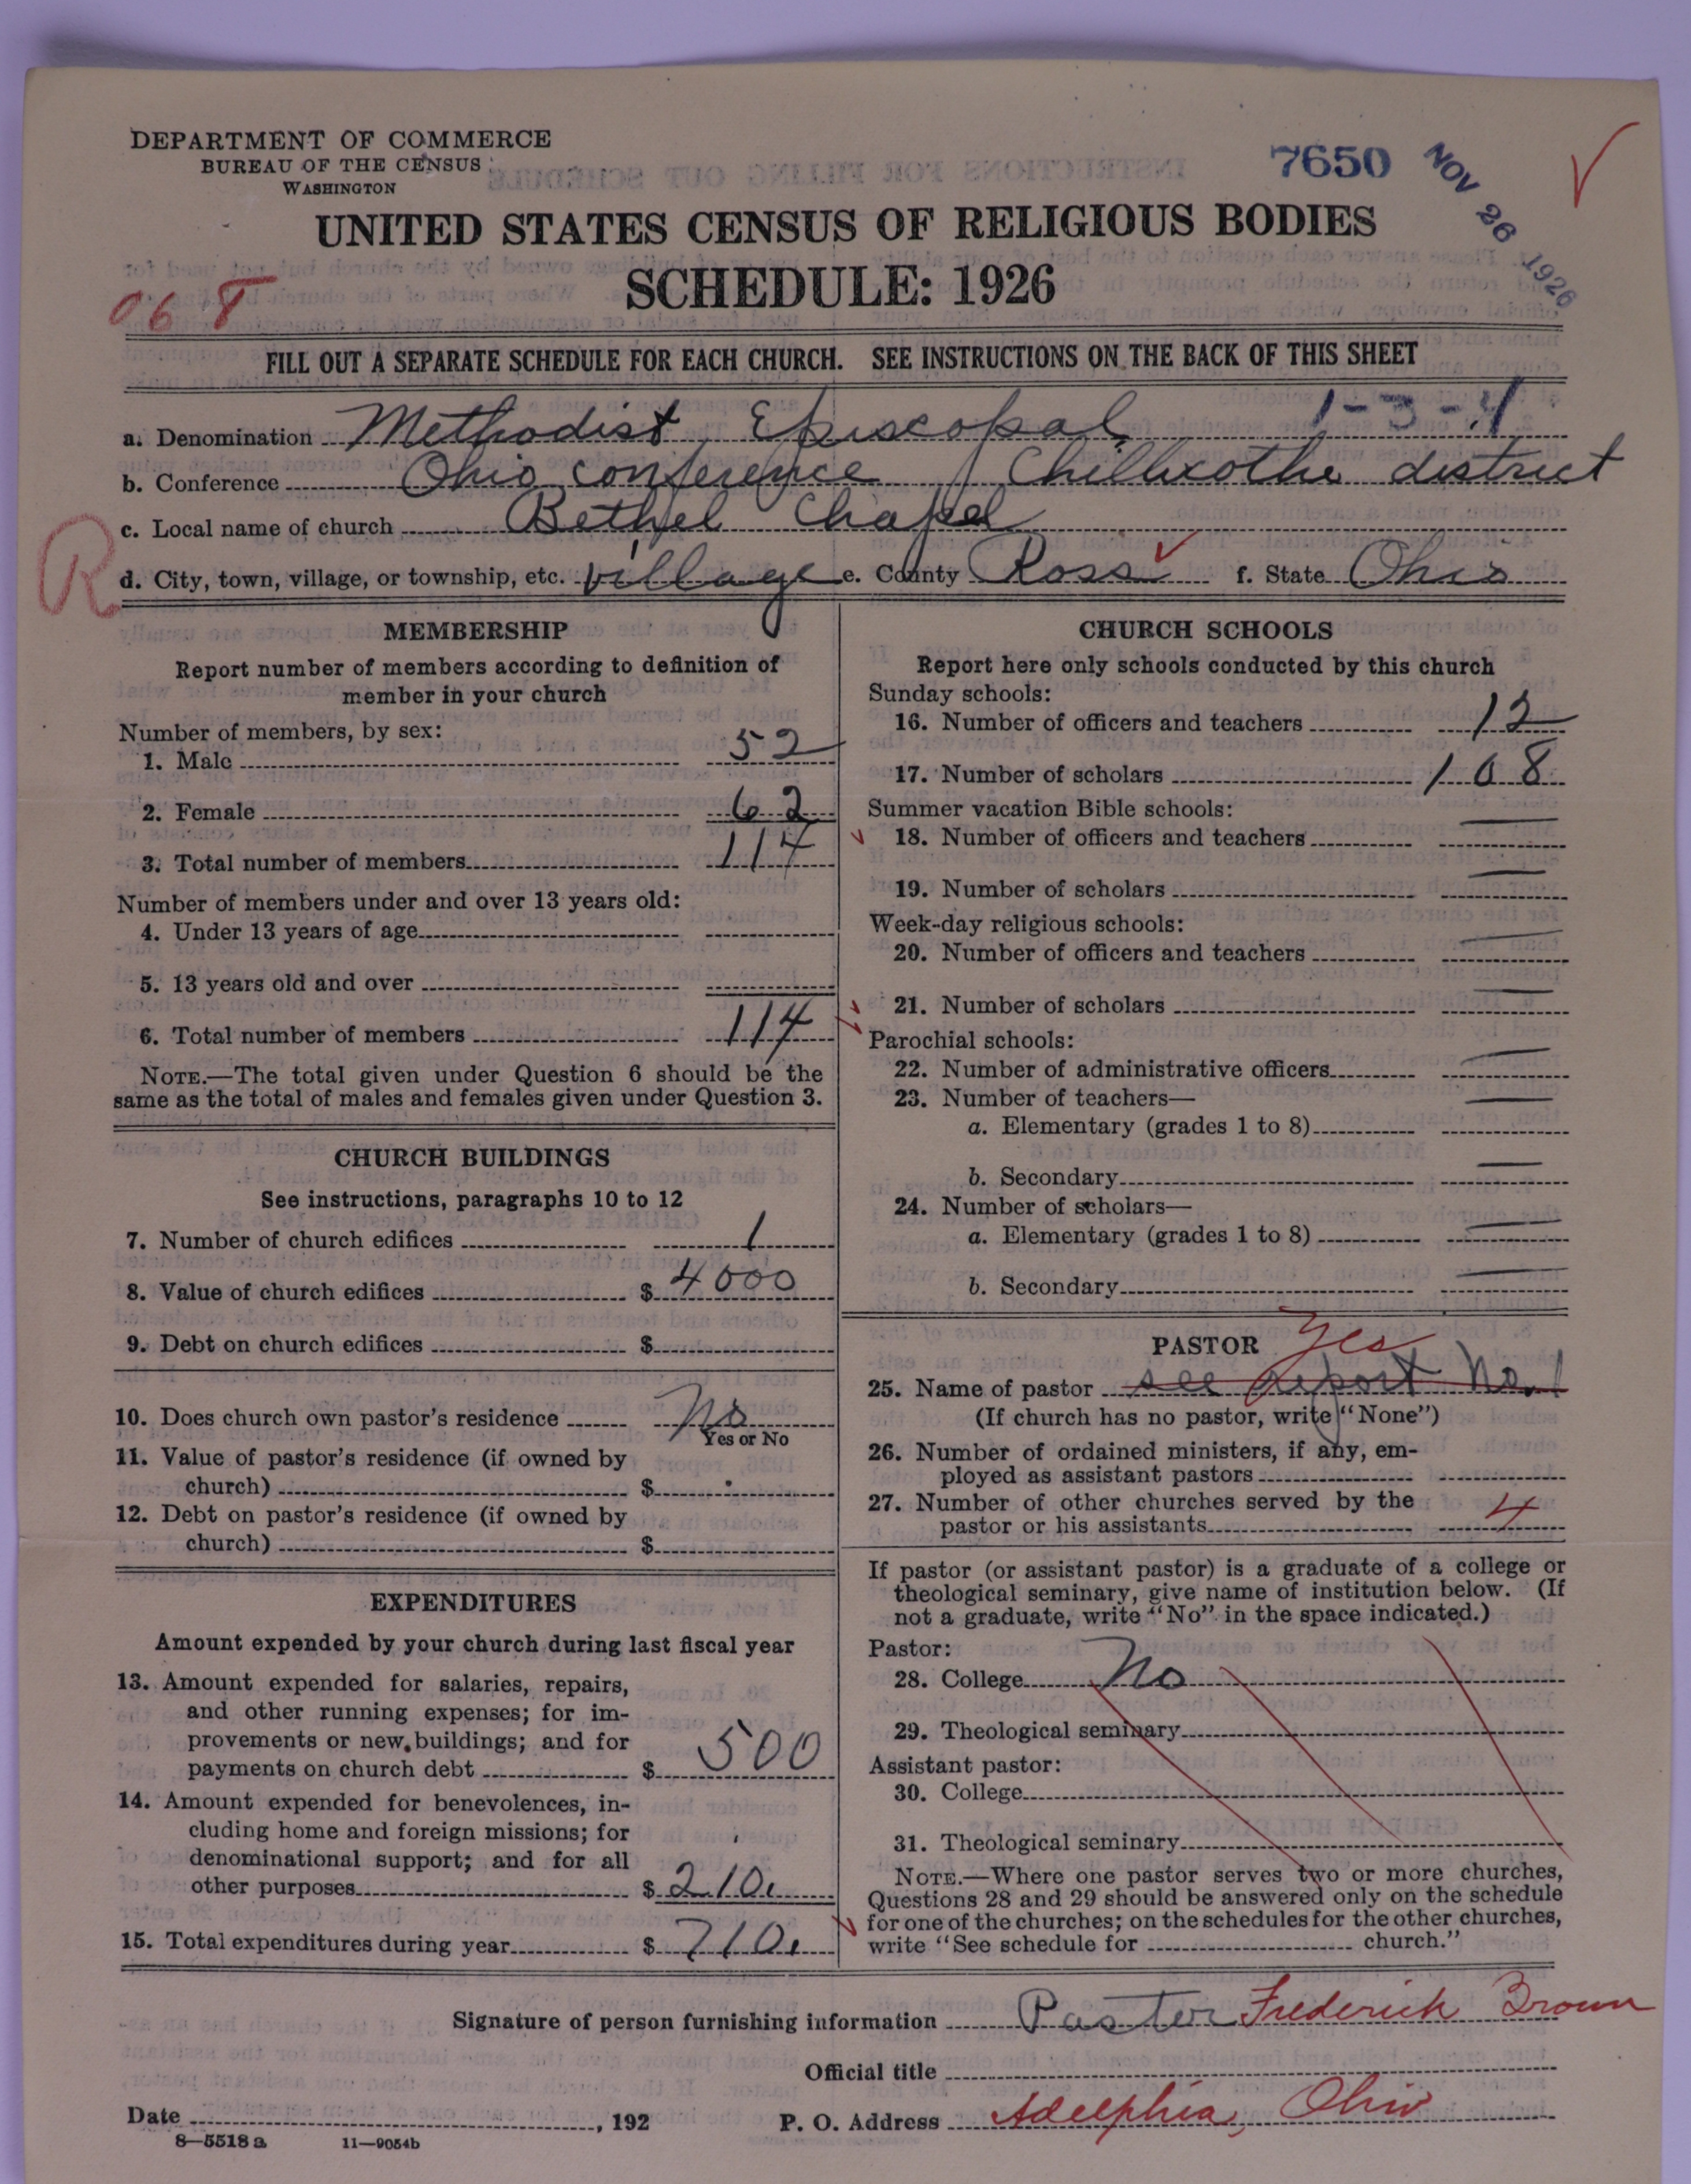 DEPARTMENT OF COMMERCE
BUREAU OF THE CENSUS
WASHINGTON
7650
NOV 26 1926
UNITED STATES CENSUS OF RELIGIOUS BODIES
SCHEDULE: 1926
068
FILL OUT A SEPARATE SCHEDULE FOR EACH CHURCH. SEE INSTRUCTIONS ON THE BACK OF THIS SHEET
1-3-4
a. Denomination Methodist Episcopal
b. Conference Ohio conference / Chillicothe district
c. Local name of church Bethel Chapel
R
d. City, town, village, or township, etc. village e. County Ross f. State Ohio
MEMBERSHIP
Report number of members according to definition of
member in your church
Number of members, by sex:
1. Male 52
2. Female 62
3. Total number of members 114
Number of members under and over 13 years old:
4. Under 13 years of age
5. 13 years old and over
6. Total number of members 114
NOTE.—The total given under Question 6 should be the
same as the total of males and females given under Question 3.
CHURCH BUILDINGS
See instructions, paragraphs 10 to 12
7. Number of church edifices 1
8. Value of church edifices $ 4000
9. Debt on church edifices $
10. Does church own pastor's residence No
Yes or No
11. Value of pastor's residence (if owned by
church) $
12. Debt on pastor's residence (if owned by
church) $
EXPENDITURES
Amount expended by your church during last fiscal year
13. Amount expended for salaries, repairs,
and other running expenses; for im-
provements or new buildings; and for
payments on church debt $ 500
14. Amount expended for benevolences, in-
cluding home and foreign missions; for
denominational support; and for all
other purposes $ 210.
15. Total expenditures during year $ 710.
CHURCH SCHOOLS
Report here only schools conducted by this church
Sunday schools:
16. Number of officers and teachers 12
17. Number of scholars 108
Summer vacation Bible schools:
18. Number of officers and teachers
19. Number of scholars
Week-day religious schools:
20. Number of officers and teachers
21. Number of scholars
Parochial schools:
22. Number of administrative officers
23. Number of teachers—
a. Elementary (grades 1 to 8)
b. Secondary
24. Number of scholars—
a. Elementary (grades 1 to 8)
b. Secondary
PASTOR Yes
25. Name of pastor see report No. 1
(If church has no pastor, write "None")
26. Number of ordained ministers, if any, em-
ployed as assistant pastors
27. Number of other churches served by the
pastor or his assistants 4
If pastor (or assistant pastor) is a graduate of a college or
theological seminary, give name of institution below. (If
not a graduate, write "No" in the space indicated.)
Pastor:
28. College No
29. Theological seminary
Assistant pastor:
30. College
31. Theological seminary
NOTE.—Where one pastor serves two or more churches,
Questions 28 and 29 should be answered only on the schedule
for one of the churches; on the schedules for the other churches,
write "See schedule for church."
Signature of person furnishing information Pastor Frederick Brown
Official title
Date , 192 P. O. Address Adelphia, Ohio
8—5518 a 11—9054b